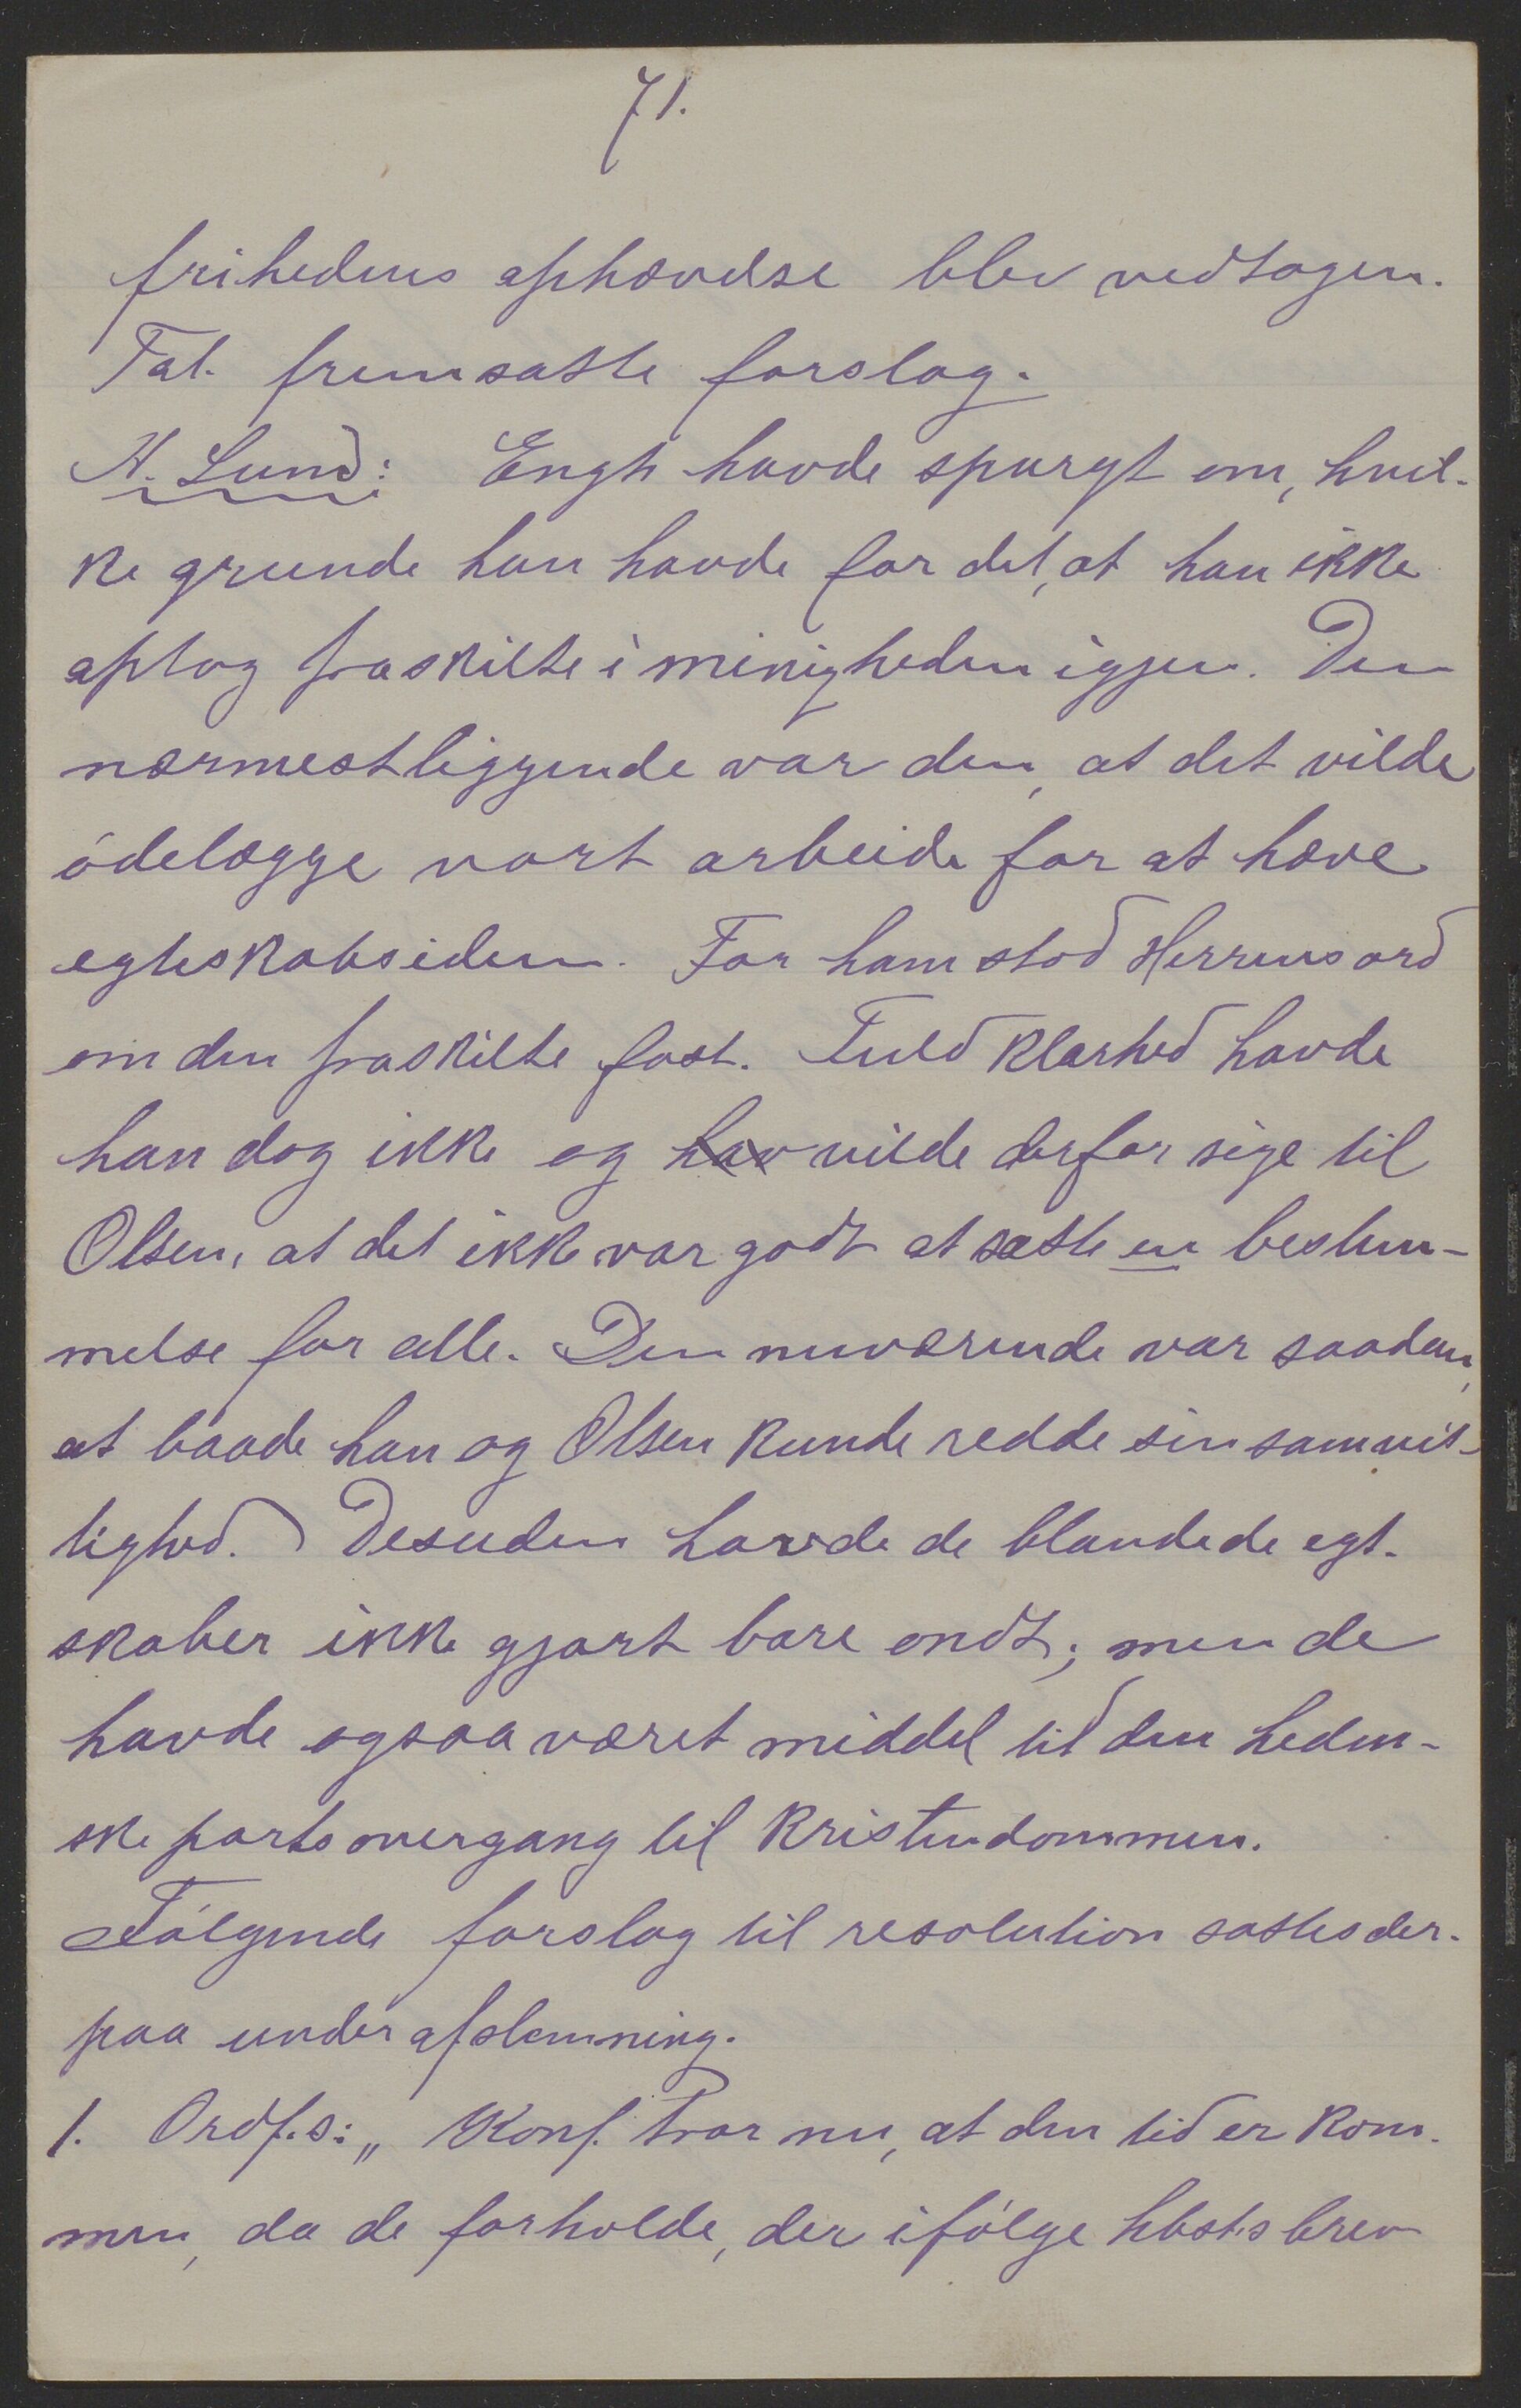 71.
frihedens ophævelse blev vedtagen.
Tal. fremsatte forslag.
H. Lund: Engh havde spurgt om, hvil-
ke grunde han havde for det, at han ikke
optog fraskilte i menigheden igjen. Den
nærmestliggende var den, at det vilde
ödelægge vort arbeide for at hæve
egteskabsideen. For ham stod Herrens ord
om den fraskilte fast. Fuld klarhed havde
han dog ikke og hav vilde derfor sige til
Olsen, at det ikke var godt at sætte en bestem-
melse for alle. Den nuværende var saadan,
at baade han og Olsen kunde redde sin samvit-
tighed. Desuden havde de blandede egt-
skaber ikke gjort bare ondt; men de
havde ogsaa været middel til den heden-
ske parts overgang til kristendommen.
Fölgende forslag til resolution sattes der-
paa under afstemning.
1. Ordf.s: „Konf. tror nu, at den tid er kom-
men, da de forholde, der ifölge hbst.s brev